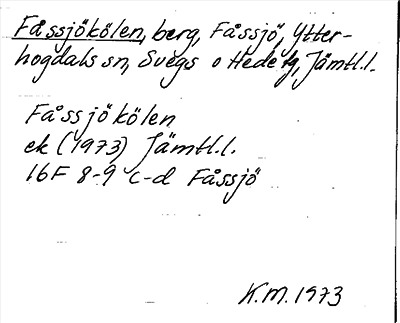 Fåssjökölen, berg, Fåssjö, Ytter-
hogdals sn, Svegs o Hede tg, Jämtl.l.
Fåssjökölen
ek (1973) Jämtl.l.
16F 8-9 c-d Fåssjö
K.M. 1973